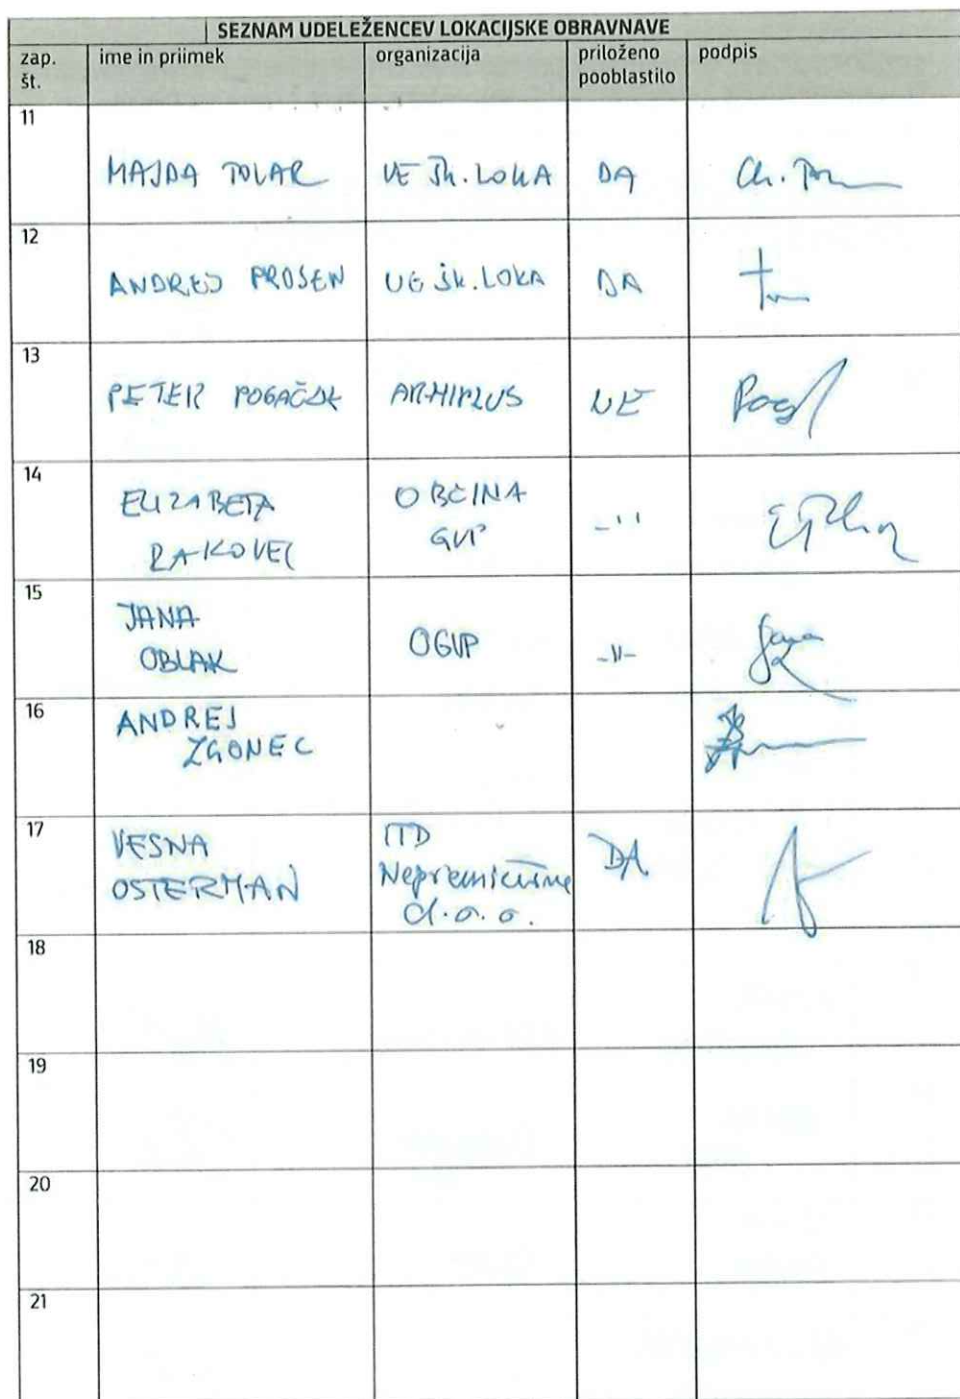 SEZNAM UDELEŽENCEV LOKACIJSKE OBRAVNAVE
zap. št. ime in priimek organizacija priloženo pooblastilo podpis
11
MAJDA TOLAR UE ŠK. LOKA DA
12
ANDREJ PROSEN UE ŠK. LOKA DA
13
PETER POGAČAR ARHIPLUS NE
14
ELIZABETA OBČINA
RAKOVEC GVP -''
15
JANA
OBLAK OGVP -"-
16
ANDREJ
ZGONEC
17
VESNA ITD DA
OSTERMAN Nepremičnine
d.o.o.
18
19
20
21